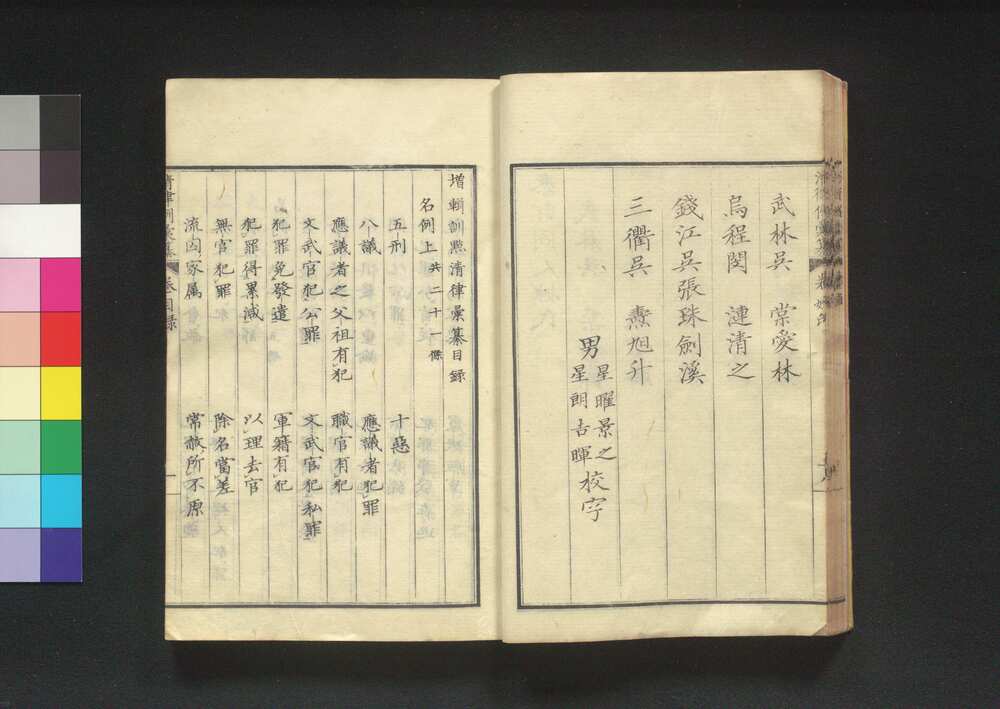 武林吳 棠愛林
烏程閔 漣清之
錢江吳張珠劍溪
三衢吳 燾旭升
男 星曜景之 校字
星朗古暉
增輯訓㸃清律彙纂目錄
名例上 共二十一條
五刑 十惡
八議 應議者犯罪
應議者之父祖有犯 職官有犯
文武官犯公罪 文武官犯私罪
犯罪免發遣 軍籍有犯
犯罪得累減 以理去官
無官犯罪 除名當差
流囚家属 常赦所不原
清律例彙纂 卷一目録